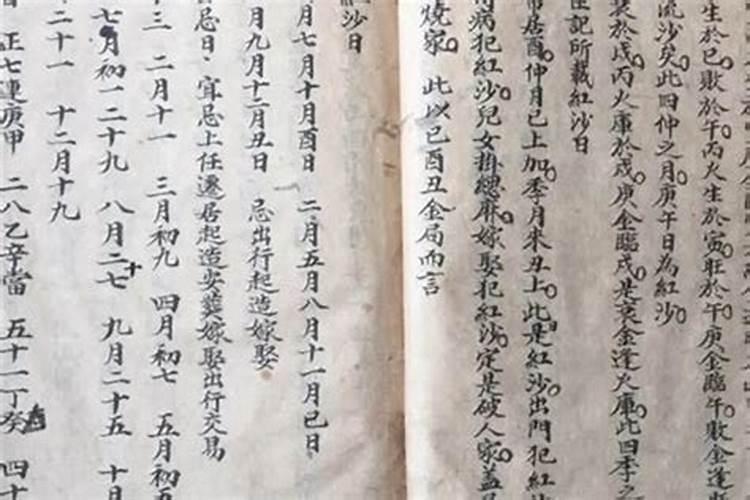 生於巳敗於午丙火生於寅旺於午庚金臨午敗金逢
流沙矣此四仲之月庚午日為紅沙
裝於戌丙火庫於戌庚金臨戌是衰金逢火庫此四季之
註記所載紅沙日
常居酉仲月已上加季月来丑上此是紅沙出門犯紅
得病犯紅沙兒女掛緦麻嫁娶犯紅沙定是破人家蓋
燒家 此以巳酉丑金局而言
紅沙日
月七月十月酉日 二月五月八月十一月巳日
月九月十二月丑日 忌出行起造嫁娶
忌日 宜忌上任遷居起造安葬嫁娶出行交易
十三 二月十一 三月初九 四月初七 五月初五
七月初一二十九 八月二十七 九月二十五 十月
二十一 十二月十九
正七連庚甲 二八乙辛當 五十一丁癸 四十